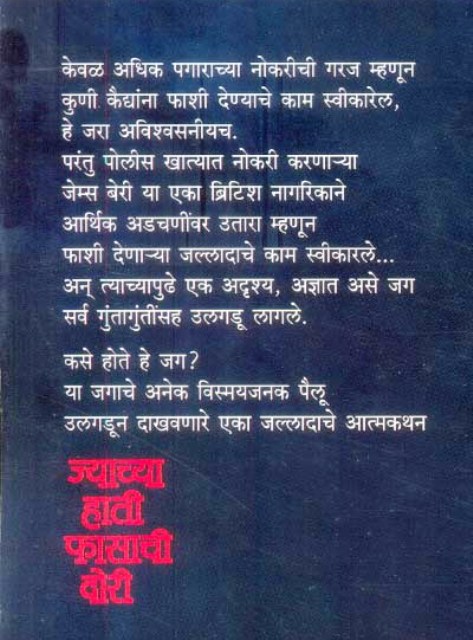 केवळ अधिक पगाराच्या नोकरीची गरज म्हणून
कुणी कैद्यांना फाशी देण्याचे काम स्वीकारेल,
हे जरा अविश्वसनीयच.
परंतु पोलीस खात्यात नोकरी करणाऱ्या
जेम्स बेरी या एका ब्रिटिश नागरिकाने
आर्थिक अडचणींवर उतारा म्हणून
फाशी देणाऱ्या जल्लादाचे काम स्वीकारले...
अन् त्याच्यापुढे एक अदृश्य, अज्ञात असे जग
सर्व गुंतागुंतींसह उलगडू लागले.
कसे होते हे जग?
या जगाचे अनेक विस्मयजनक पैलू
उलगडून दाखवणारे एका जल्लादाचे आत्मकथन
ज्याच्या
हाती
फासाची
दोरी